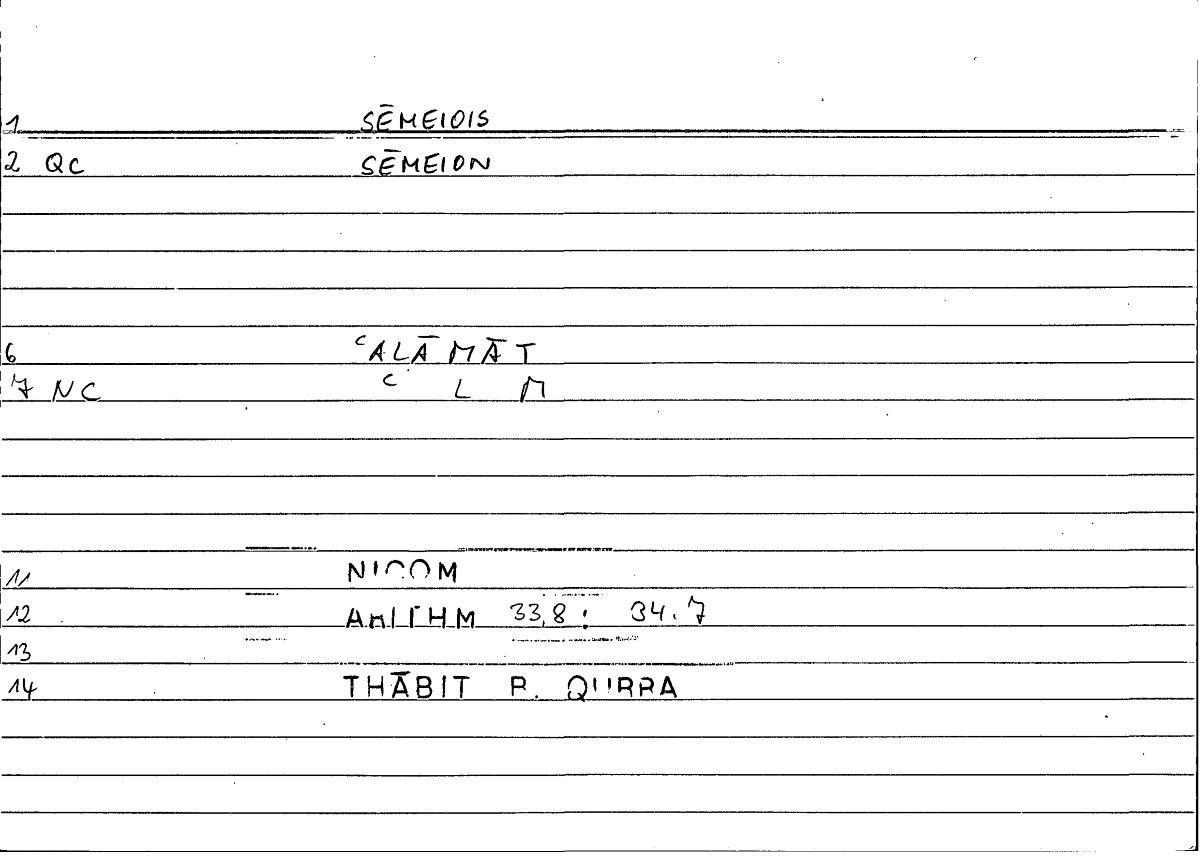 1 SĒMEIOIS
2 QC SĒMEION
6 ʿALĀMĀT
7 NC ʿ L M
11 NICOM
12 ARITHM 33,8; 34.7
13
14 THĀBIT B. QURRA